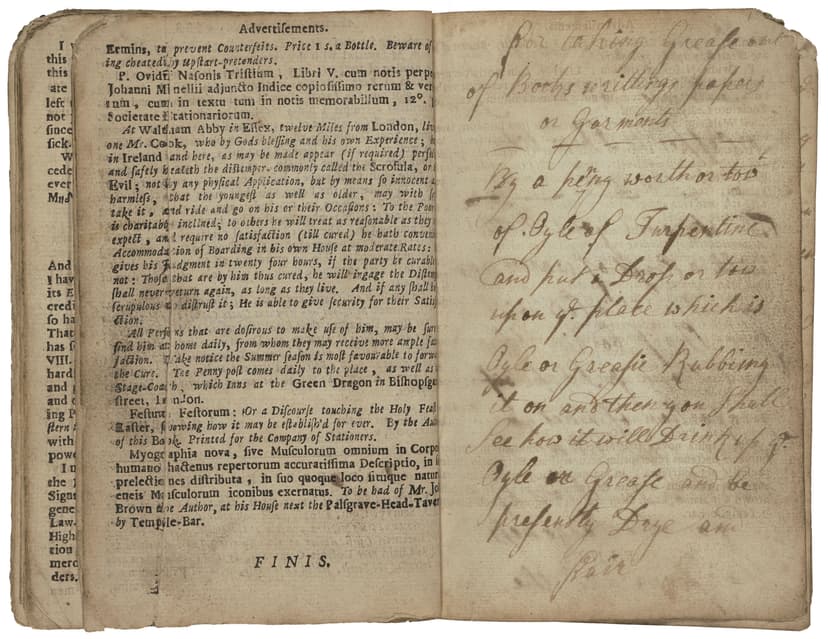 I v
this
this
ate
left
not
since
sick.
W
cede
ever
And
I hav
its E
credi
so ha
That
has
VIII.
hard
and
and
ing P
stern
with
powe
I
the
Signs
gene
Law-
High
tion
merc
ders.
Advertisements.
Ermins, to prevent Counterfeits. Price 1 s. a Bottle. Beware of
ing cheated by Upstart-pretenders.
P. Ovidii Nasonis Tristium, Libri V. cum notis perpe
Johanni Minellii adjuncto Indice copiosissimo rerum & ver
um, cum in textu tum in notis memorabilium, 12°.
Societate Stationariorum.
At Waltham Abby in Essex, twelve Miles from London, liv
one Mr. Cook, who by Gods blessing and his own Experience;
in Ireland and here, as may be made appear (if required) perf
and safely healeth the distemper commonly called the Scrofula, or
Evil; not by any physical Application, but by means so innocent a
harmless, that the youngest as well as older, may with s
take it, and ride and go on his or their Occasions: To the Poor
is charitably inclined; to others he will treat as reasonable as they
expect, and require no satisfaction (till cured) he hath conveni
Accommodation of Boarding in his own House at moderate Rates:
gives his Judgment in twenty four hours, if the party be curable
not: Those that are by him thus cured, he will ingage the Distem
shall never return again, as long as they live. And if any shall b
scrupulous to distrust it; He is able to give security for their Satis
ction.
All Persons that are dosirous to make use of him, may be sure
find him at home daily, from whom they may receive more ample sa
faction. Take notice the Summer season is most favourable to forw
the Cure. The Penny post comes daily to the place, as well as
Stage-Coach, which Inns at the Green Dragon in Bishopsg
street, London.
Festum Festorum: Or a Discourse touching the Holy Feas
Easter, shewing how it may be establish'd for ever. By the Au
of this Book. Printed for the Company of Stationers.
Myographia nova, sive Musculorum omnium in Corpo
humano hactenus repertorum accuratissima Descriptio, in
prelectiones distributa, in suo quoque loco situque natur
eneis Musculorum iconibus exernatus. To be had of Mr. Jo
Brown the Author, at his House next the Palsgrave-Head-Tave
by Temple-Bar.
FINIS.
For taking Grease out
of Books writtings papers
or Garments
By a peny worth or tow
of Oyle of Turpentine
and put a Drop or tow
upon ye place which is
Oyle or Greasie Rubbing
it on and then you Shall
See how it will Drink up ye
Oyle or Grease and be
presently Drye an
Fair